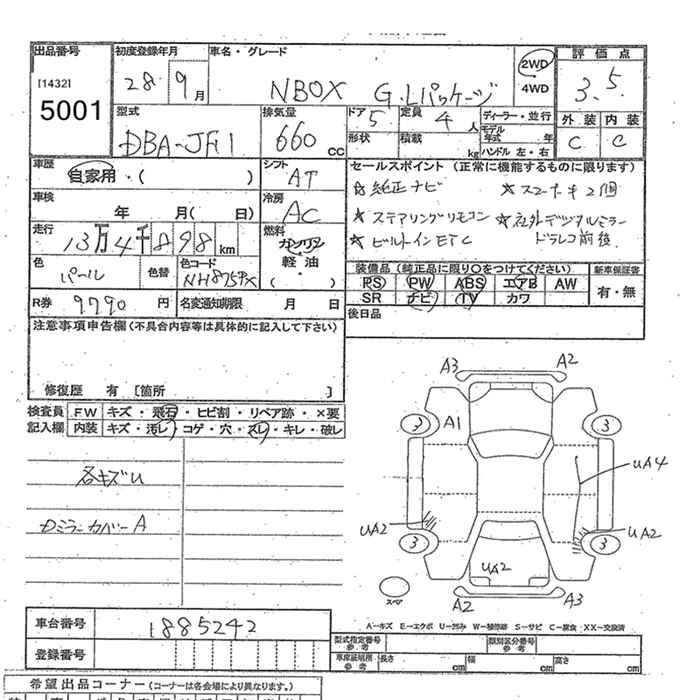 出品番号 初度登録年月 車名・グレード 評価点
[1432] 5001
28 9月 NBOX G・Lパッケージ 2WD 4WD 3.5
型式 排気量 ドア 定員 ディーラー・並行 外装 内装
DBA-JF1 660cc 5 4人 モデル年式 年 C C
形状 積載 kg ハンドル 左・右
車歴 自家用・( ) シフト AT セールスポイント(正常に機能するものに限ります)
☆純正ナビ ★スマートキー2個
車検 年 月( 日) 冷房 AC
★ステアリングリモコン ★社外デジタルミラー
走行 13万4千898km 燃料 ガソリン 軽油・( )
★ビルトインETC ドラレコ前後
色 パール 色替 色コード NH875PX
装備品(純正品に限り〇をつけてください) 新車保証書
PS PW ABS エアB AW 有・無
SR ナビ TV カワ
R券 9790円 名変通知期限 月 日
後日品
注意事項申告欄(不具合内容等は具体的に記入して下さい)
修復歴 有 [箇所 ]
検査員 FW キズ・飛石・ヒビ割・リペア跡・×要
記入欄 内装 キズ・汚レ・コゲ・穴・スレ・キレ・破レ
各キズU
Dミラーカバー A
A3 A2
3 A1 3
UA4
UA2 UA2
3 3
UA2
スペア A2 A3
A-キズ E-エクボ U-凹み W-補修跡 S-サビ C-腐食 XX-交換済
車台番号 1885242
登録番号
型式指定番号 参考 類別区分番号 参考
車庫証明用 参考 長さ cm 幅 cm 高さ cm
希望出品コーナー(コーナーは各会場により異なります。)